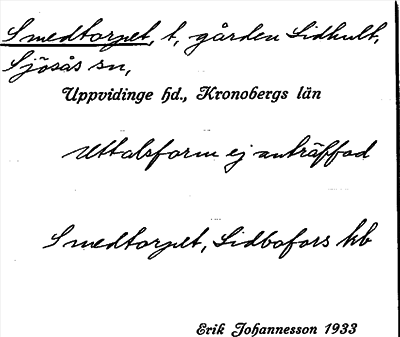 Smedtorpet, t, gården Lidhult,
Sjösås sn,
Uppvidinge hd., Kronobergs län
Uttalsform ej anträffad
Smedtorpet, Lidbofors kb
Erik Johannesson 1933